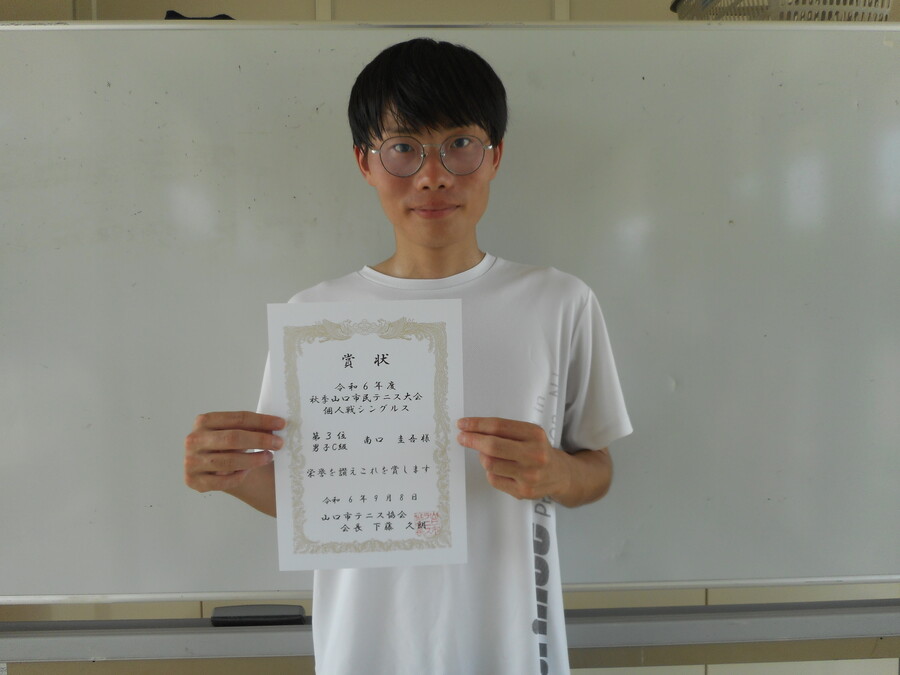 賞 状
令和6年度
秋季山口市民テニス大会
個人戦シングルス
第3位
男子C級
南口 圭吾様
栄誉を讃えこれを賞します
令和 6年 9月 8日
山口市テニス協会
会長 下藤 久